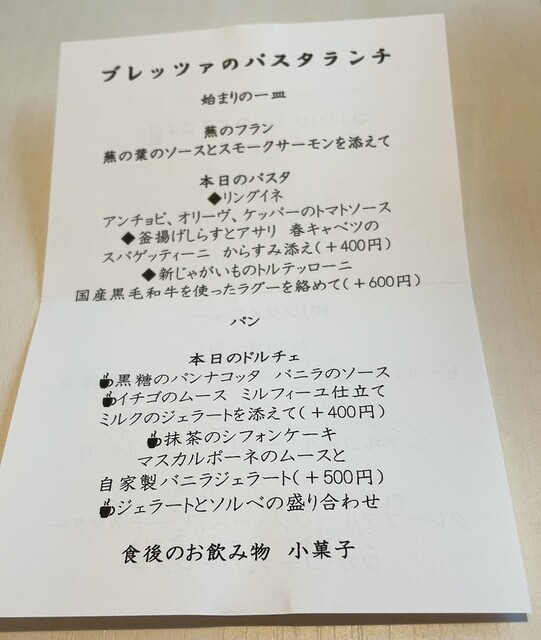 ブレッツァのパスタランチ
始まりの一皿
蕪のフラン
蕪の葉のソースとスモークサーモンを添えて
本日のパスタ
◆リングイネ
アンチョビ、オリーヴ、ケッパーのトマトソース
◆釜揚げしらすとアサリ 春キャベツの
スパゲッティーニ からすみ添え(+400円)
◆新じゃがいものトルテッローニ
国産黒毛和牛を使ったラグーを絡めて(+600円)
パン
本日のドルチェ
☕黒糖のパンナコッタ バニラのソース
☕イチゴのムース ミルフィーユ仕立て
ミルクのジェラートを添えて(+400円)
☕抹茶のシフォンケーキ
マスカルポーネのムースと
自家製バニラジェラート(+500円)
☕ジェラートとソルベの盛り合わせ
食後のお飲み物 小菓子